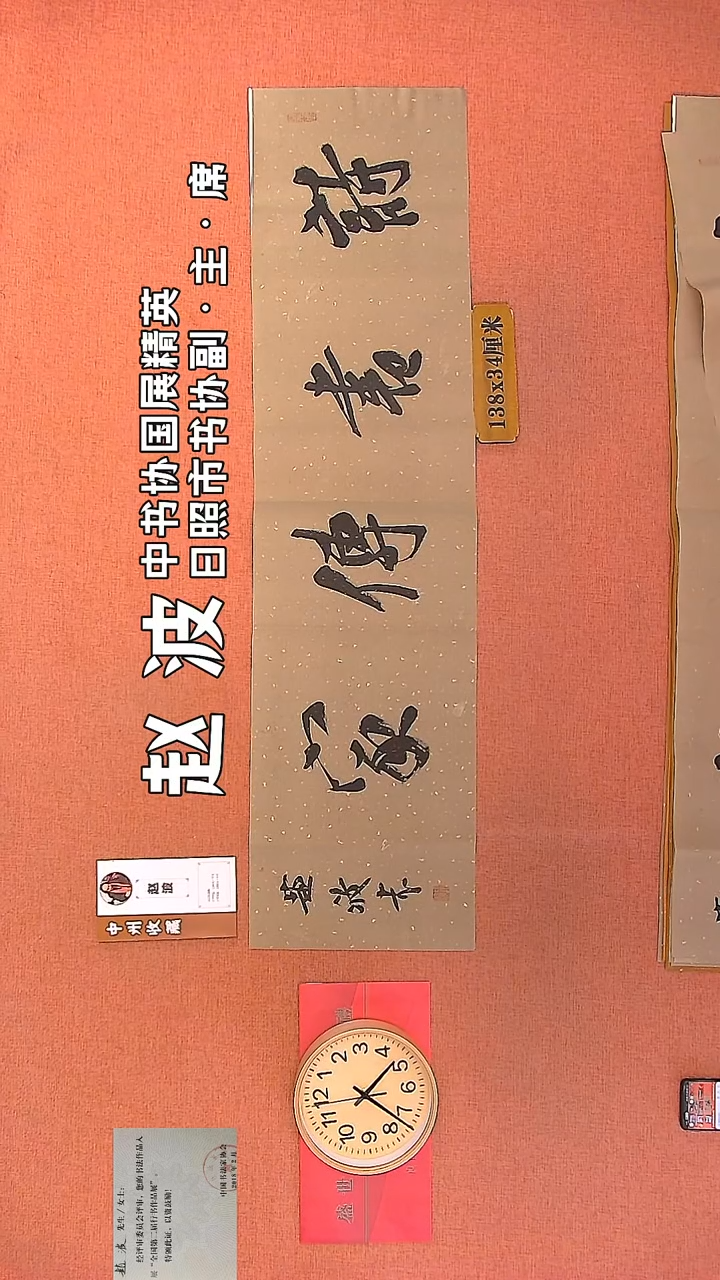 赵波
中书协国展精英
日照市书协副·主·席
詩書傳家
趙波书
138x34厘米
赵波
中州收藏
12
1
2
3
4
5
6
7
8
9
10
11
盛世
趙波 先生/女士:
经评审委员会评审,您的书法作品入
展“全国第二届行书作品展”。
特颁此证,以资鼓励!
中国书法家协会